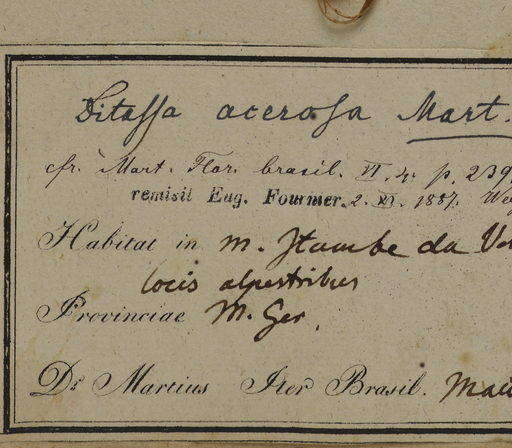 Ditassa acerosa Mart.
cfr. Mart. Flor. brasil. VI. 4. p. 239
remisit Eug. Fournier. 2. XI. 1887.
Habitat in m. Itambe da
locis alpestribus
Provinciae M. Ger.
Dr Martius Iter Brasil.